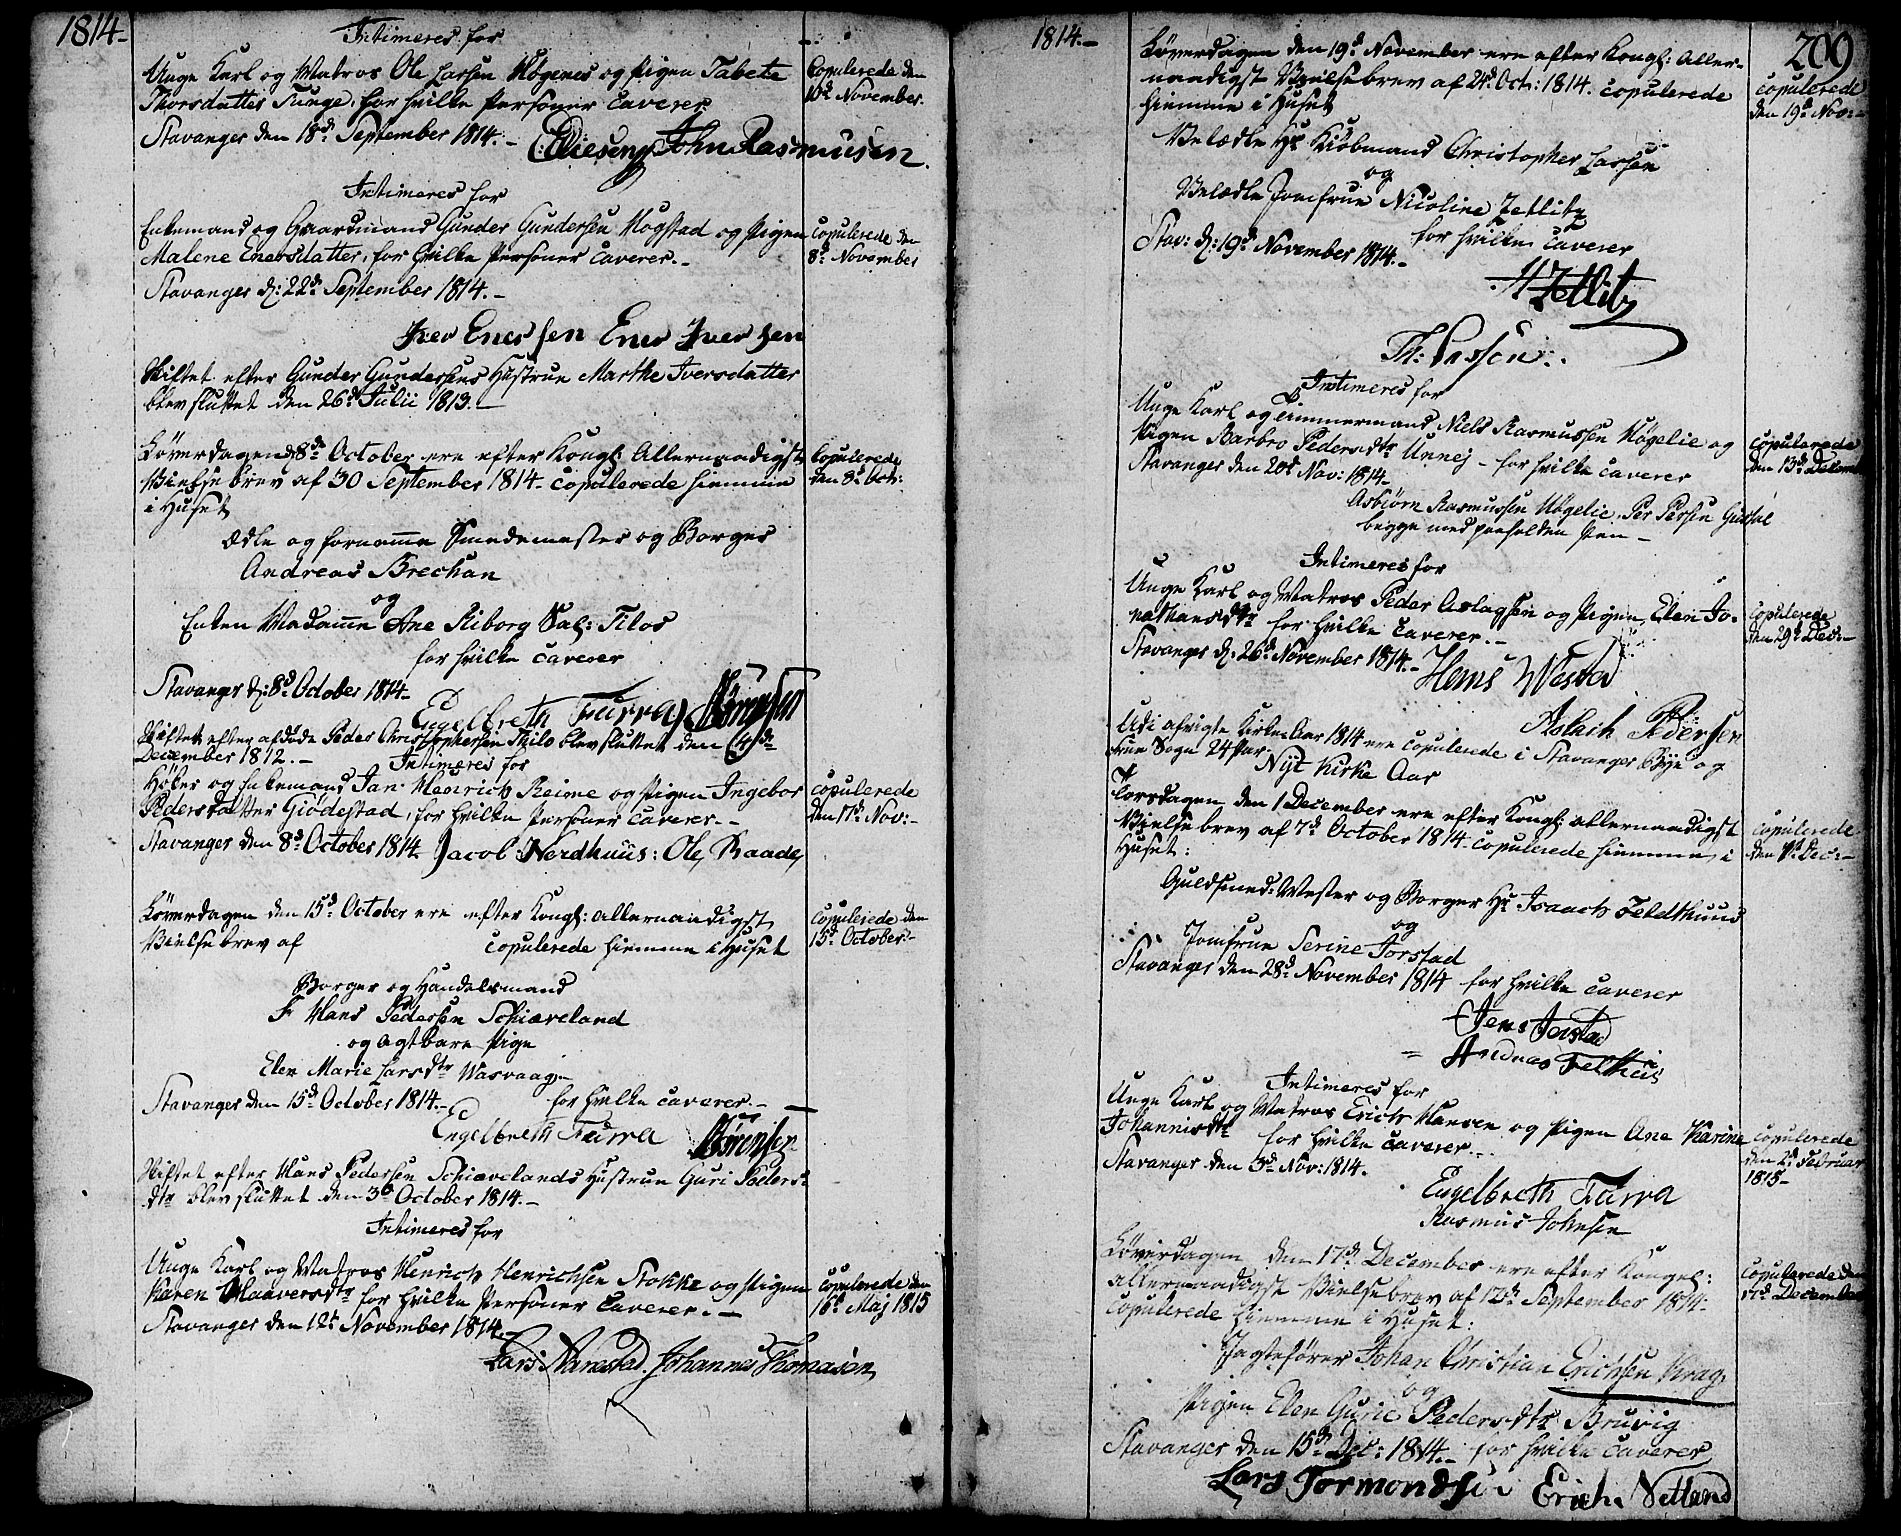 1814.-
Intimeres for
Unge Karl og Matros Ole Larsen Høgenes og Pigen Tabete
Thorsdatter Tunge, for hvilke Personer Caverer
Stavanger den 18d September 1814.-
John Rasmussen
Copulerede den
10d November.
Intimeres for
Enkemand og Gaardmand Gunder Gundersen Hogstad og Pigen
Malene Enersdatter, for hvilke Personer Caverer.-
Stavanger d: 22d September 1814.-
Iver Enersen Ener Iversen
Copulerede den
8d November
Skiftet efter Gunder Gundersens Hustrue Marthe Iversdatter
blev sluttet den 26d Julii 1813.-
Løverdagen d 8d October ere efter Kongl: Allernaadigst
Bielsebrev af 30 September 1814 - Copulerede hiemme
i Huset
Copulerede
den 8d Octr:
Ædle og fornemme Smedemester og Borger
Andreas Brechan
og
Enken Madamme Ane Riborg Sal: Tilos
for hvilke caverer
Stavanger d: 8d October 1814-
Engelbreth Furra Sørensen
Skiftet efter afdøde Peder Christophersen Thilo blev sluttet den 4de
December 1812.-
Intimeres for
Høker og Enkemand Jan Henrich Reime og Pigen Ingebor
Pedersdatter Giødestad, for hvilke Personer caverer.-
Stavanger den 8d October 1814
Jacob Nordhuüs: Ole, Raade,
Copulerede
den 17d Nov:-
Løverdagen den 15d October ere efter Kongl: allernaadigst
Bielsebrev af copulerede hiemme i Huset
Copulerede den
15d October.-
Borger og Handelsmand
Hans Pedersen Schiæveland
og agtbare Pige
Elen Marie Larsdtr Wasvaag
Stavanger den 15d October 1814.- for hvilke caverer.-
Engelbreth Furra Sørensen
Skiftet efter Hans Pedersen Schiævelands Hustrue Guri Peders-
dtr blev sluttet den 3d October 1814.-
Intimeres for
Unge Karl og Matros Henrich Henrichsen Stokke og Pigen
Karen Haaversdtr for hvilke Personer Caverer.-
Stavanger den 12t November 1814.
Johannes Thomasen
Copulerede den
16d Maj 1815
1814.-
209
Løverdagen den 19d November ere efter Kongl: Aller-
naadigst Bielsebrev af 24d Oct: 1814. copulerede
hiemme i Huset
Copulerede
den 19d Nov:-
Velædle Hr Kiøbmand Christopher Larsen
og
Velædle Jomfrue Nicoline Zetlitz
for hvilke Caverer
Stav: d: 19d November 1814.-
Zetlitz
Th: Larsen.
Intimeres for
Unge Karl og Tømmermand Niels Rasmussen Høgelie og
Pigen Barbro Pedersdtr Unnej - for hvilke caverer
Stavanger den 20d Nov: 1814-
Copulerede
den 13d Decemb
Asbiørn Rasmussen Høgelie. Per Persen
begge med paaholden Pen -
Intimeres for
Unge Karl og Matros Peder Aslagsen og Pigen Elen Jo-
nathansdtr for hvilke caverer.-
Stavanger d: 26d November 1814.-
Copulerede
den 29d Dec:-
Aslach Pedersen
Udi afvigte Kirke Aar 1814 ere copulerede i Stavanger Bye og
Frue Sogn 24 Par.
Nyt Kirke Aar
Torsdagen den 1 December ere efter Kongl: allernaadigst
Bielsebrev af 7d October 1814. copulerede hiemme i
Huset:
Copulerede
den 1d Dec:-
Guldsmed: Mester og Borger Hr Isaach Feldthuus
og
Jomfrue Serine Jorstad
Stavanger den 28d November 1814 for hvilke caverer
Jens Jorstad
Andreas Felthuus
Intimeres for
Unge Karl og Matros Erich Hansen og Pigen Ane Karine
Johannisdtr for hvilke Caverer.-
Stavanger den 3d Nov: 1814.
Copulerede
den 2d Februar
1815-
Engelbreth Furra
Rasmus Johnsen
Løverdagen den 17d December ere efter Kongel:
allernaadigst Bielsebrev af 17d September 1814-
Copulerede hiemme i Huset:
Copulerede den
17d December
Jagtefører Johan Christian Erichsen Krag
og
Pigen Elen Gurie Pedersdtr Bruvig
Stavanger den 15d Dec: 1814.- for hvilke caverer
Lars Tormondsen Erich Netland